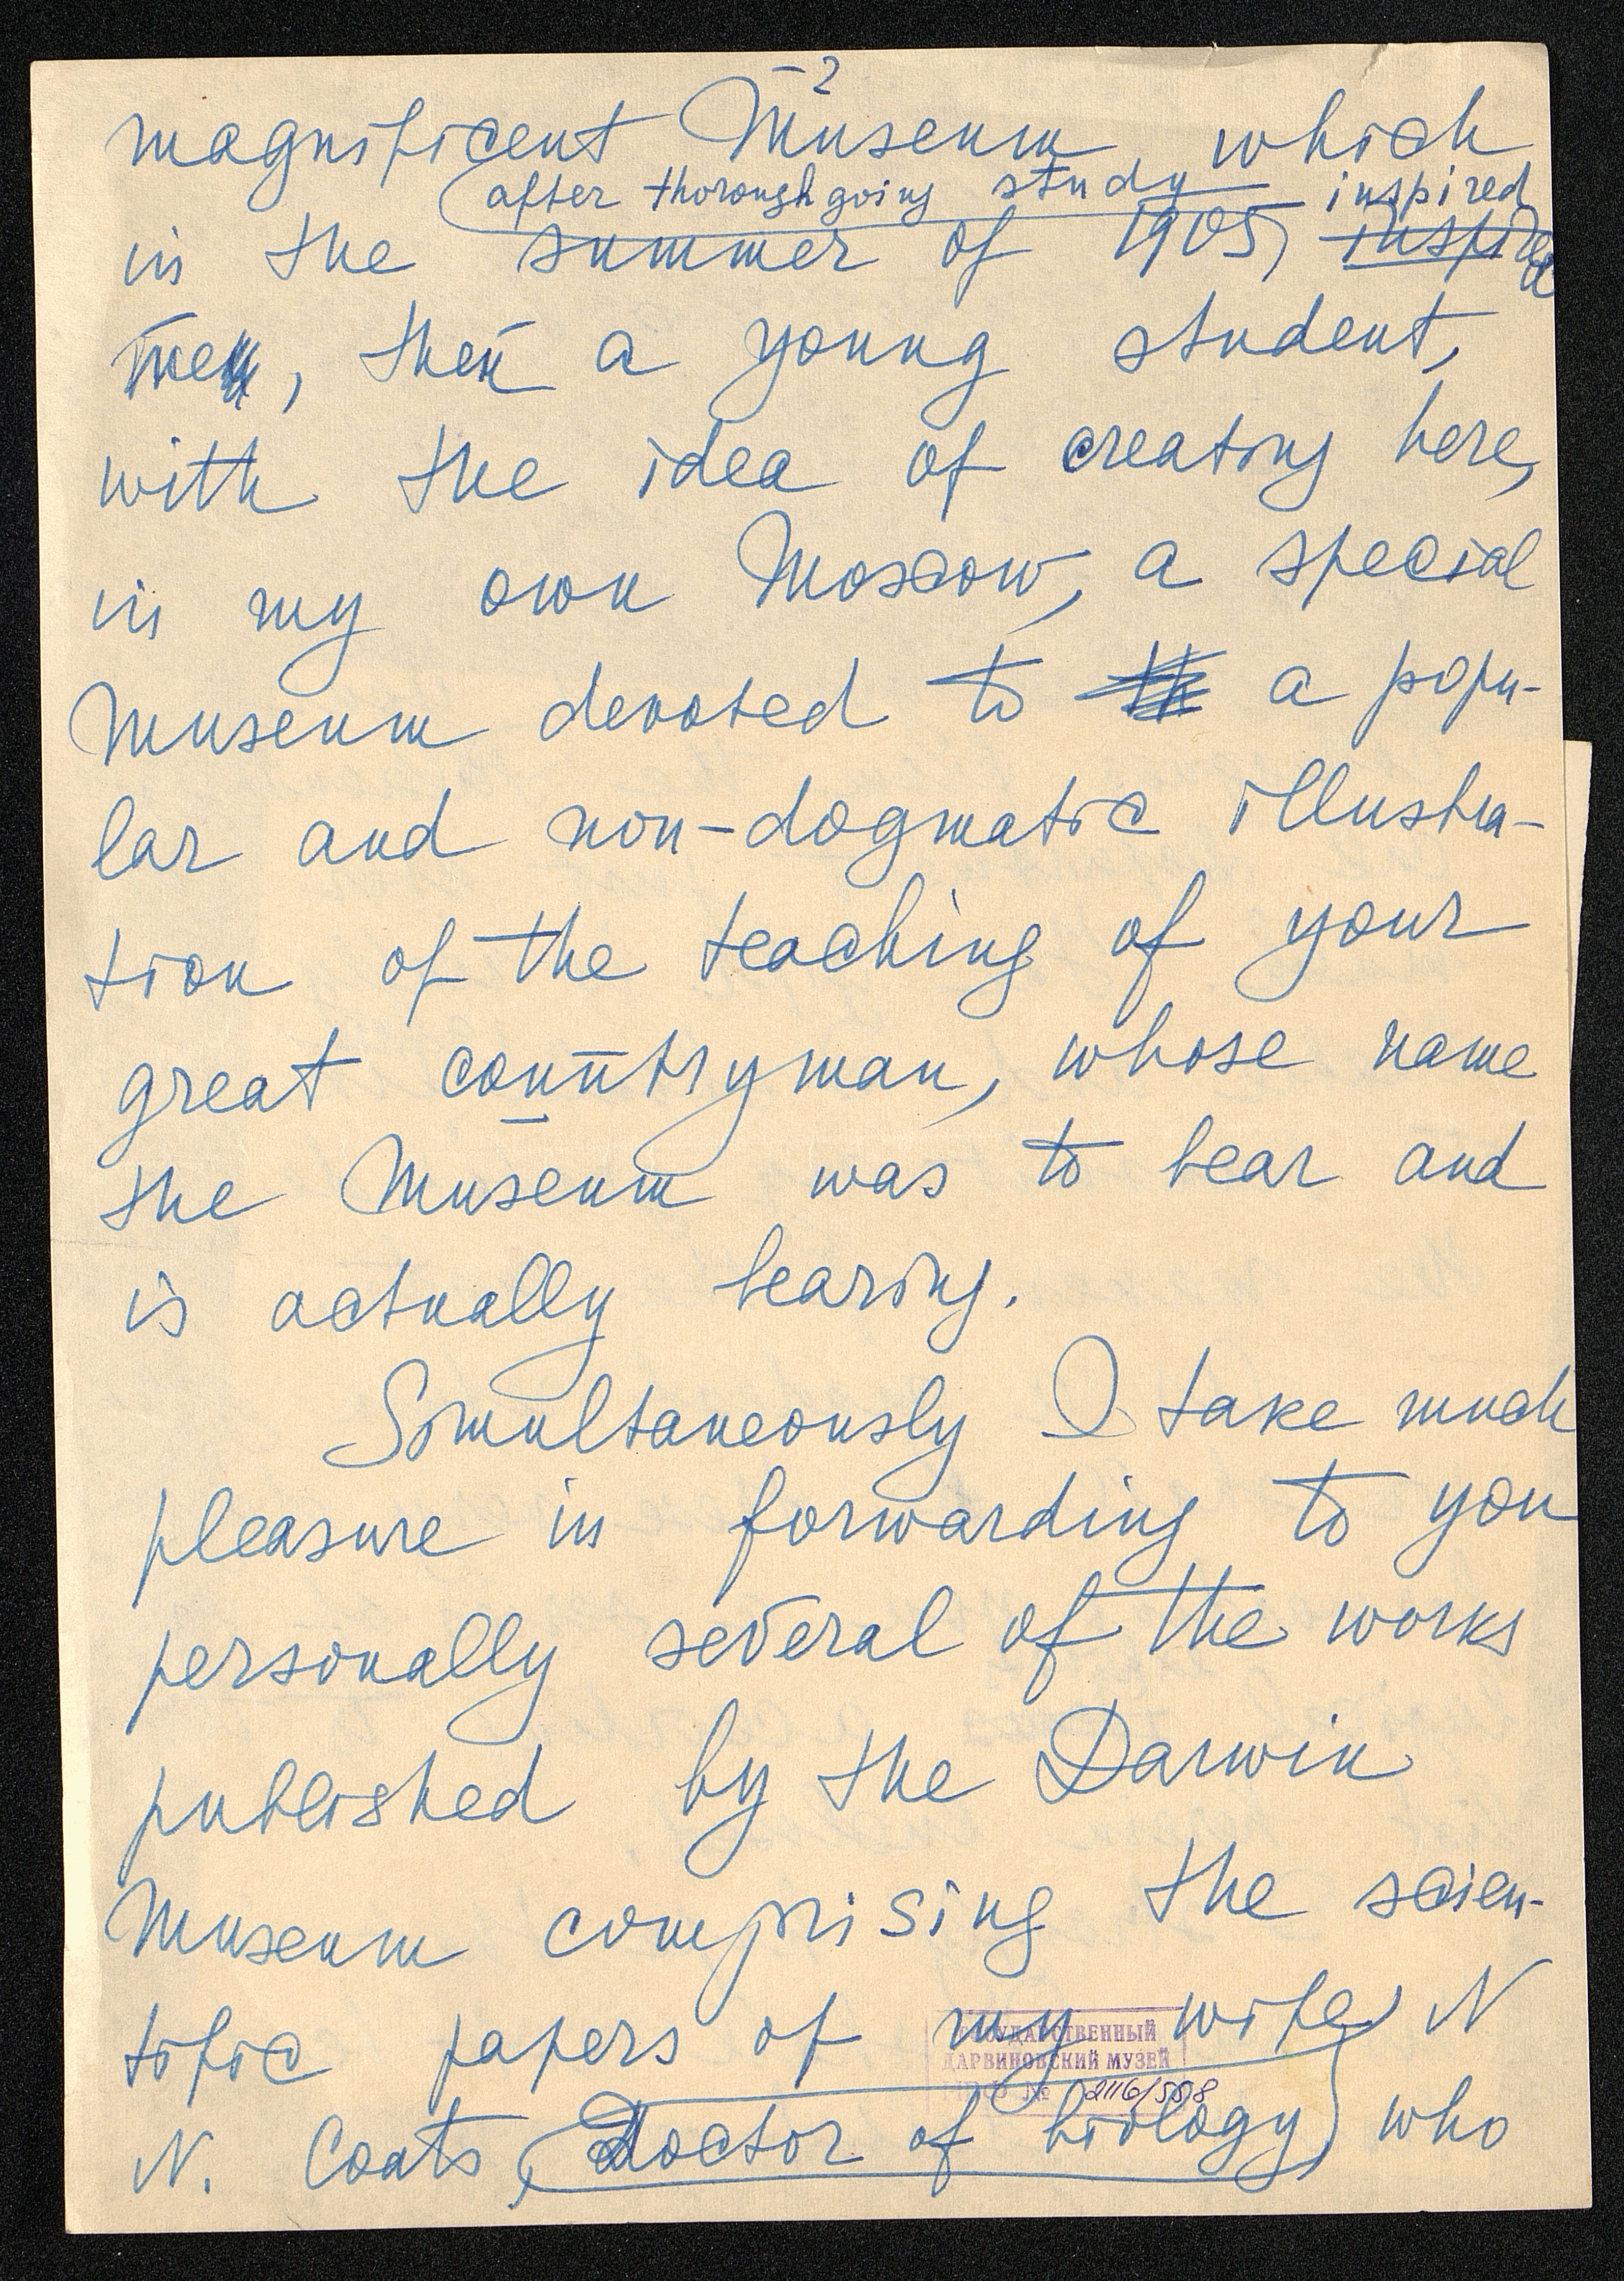 -2
magnificent Museum, which
after thorough going study inspired
in the summer of 1905, inspire
me, then a young student,
with the idea of creating here,
in my own Moscow, a special
Museum devoted to a popu-
lar and non-dogmatic illustra-
tion of the teaching of your
great countryman, whose name
the Museum was to bear and
is actually bearing.
Simultaneously I take much
pleasure in forwarding to you
personally several of the works
published by the Darwin
Museum comprising the scien-
tific papers of my wife, N
ГОСУДАРСТВЕННЫЙ
ДАРВИНОВСКИЙ МУЗЕЙ
№ 2116/558
N. Coats, (Doctor of biology) who